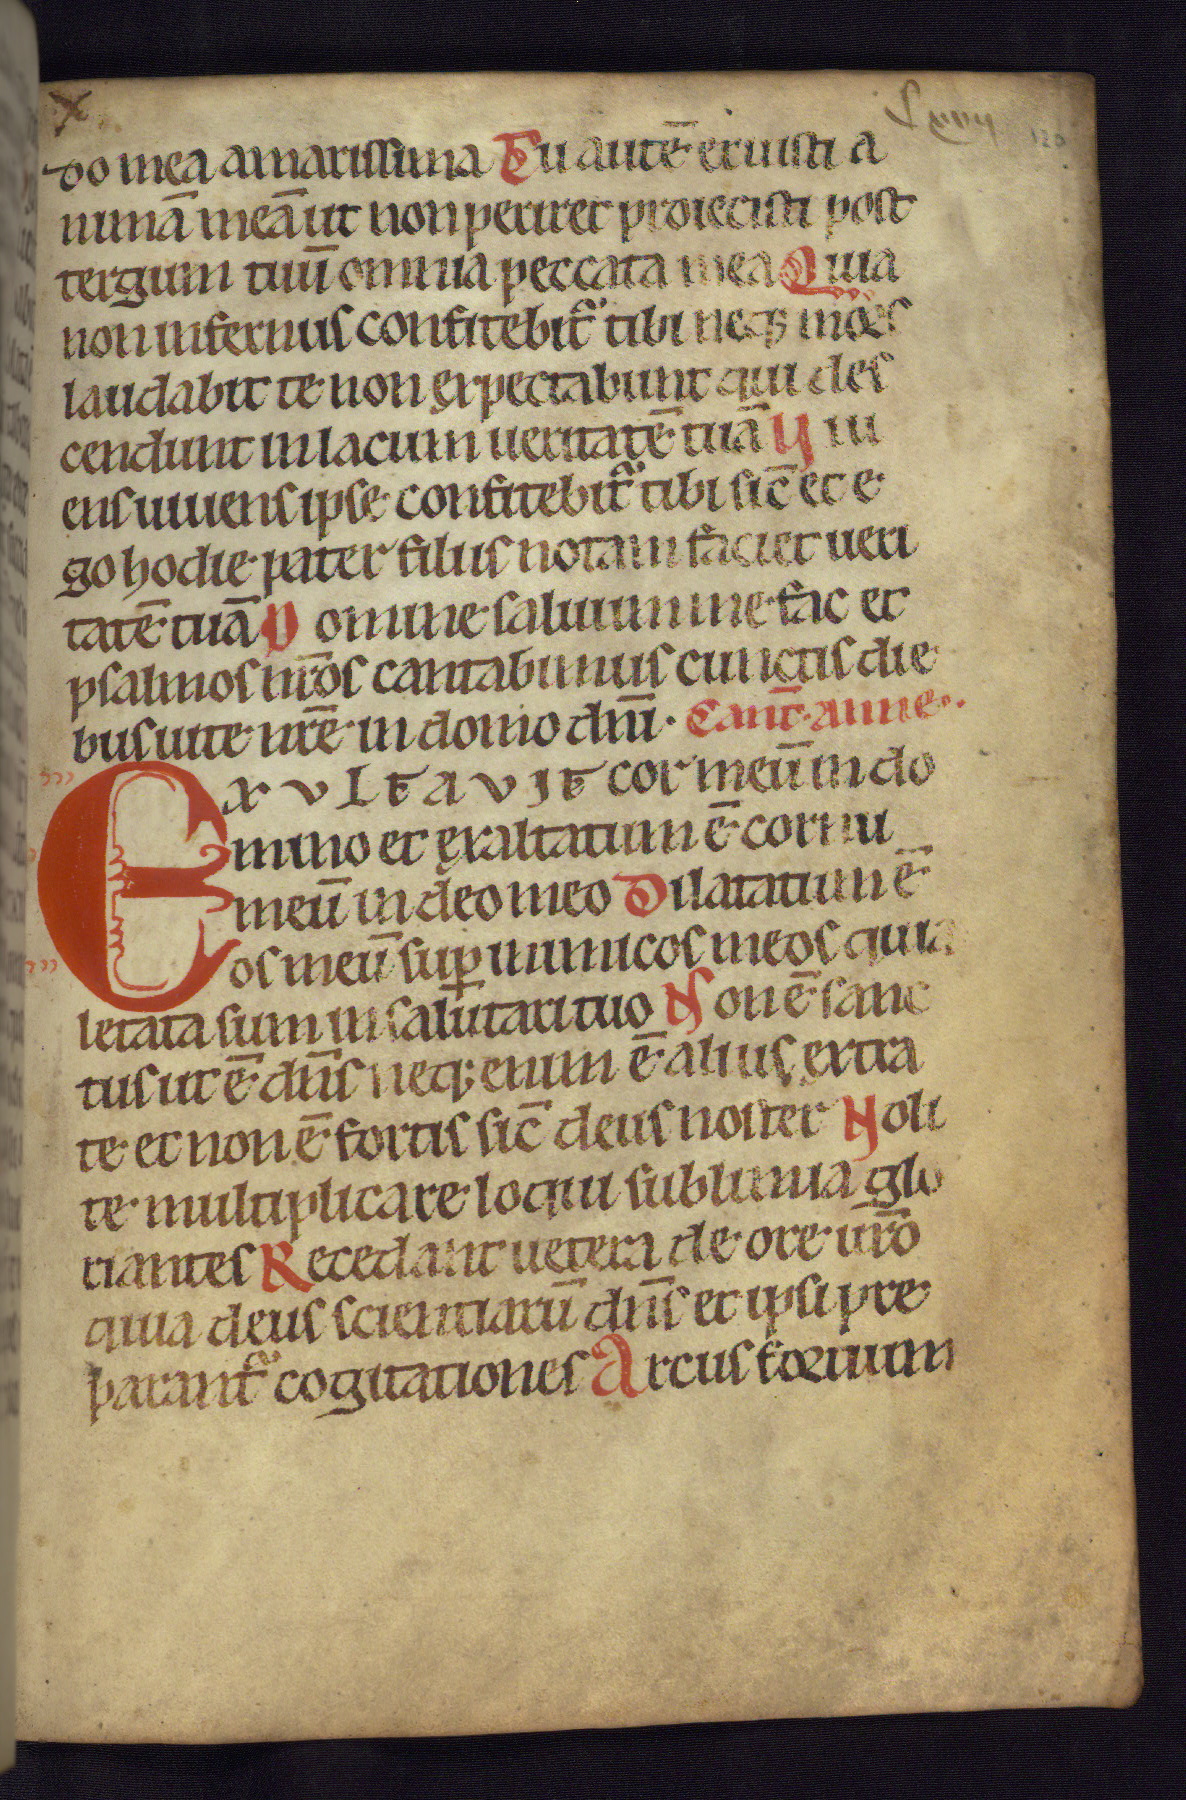 do mea amarissima Tu autē eruisti a
nimā meā ut non periret proiecisti post
tergum tuū omnia peccata mea Quia
non infernus confitebit᷑ tibi neq; mors
laudabit te non expectabunt qui des
cendunt in lacum ueritatē tuā Uiu
ens uiuens ipse confitebit᷑ tibi sic̄ et e
go hodie pater filiis notam faciet ueri
tatē tuā Domine saluum me fac et
psalmos nr̄os cantabimus cunctis die
bus uite nr̄e in domo dn̄i. Cant̄. anne.
EXVLTAVIT cor meū in do
mino et exaltatum ē cornu
meū in deo meo Dilatatum ē
os meū sup̄ inimicos meos quia
letata sum in salutari tuo Non ē sanc
tus ut ē dn̄s neq; enim ē alius extra
te et non ē fortis sic̄ deus noster Noli
te multiplicare loqui sublimia glo
riantes Recedant uetera de ore ur̄o
quia deus scientiarū dn̄s et ipsi pre
parant᷑ cogitationes Arcus fortium